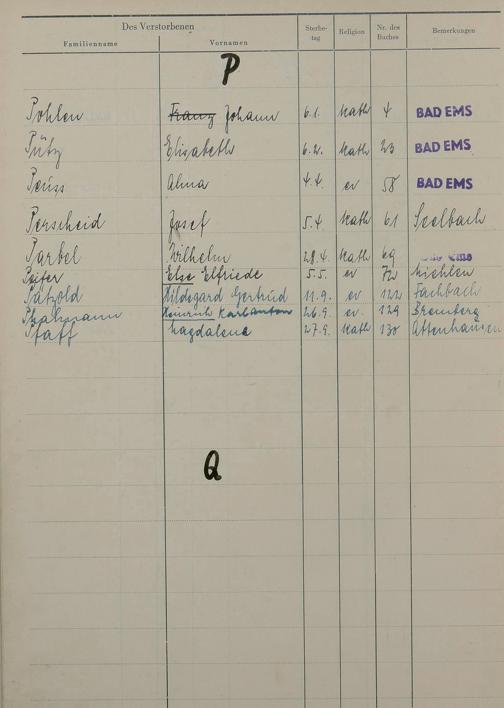 Des Verstorbenen Sterbe- tag Religion Nr. des Buches Bemerkungen
Familienname Vornamen
P
Pohlen Franz Johann 6.1. kath 4 BAD EMS
Pütz Elisabeth 6.2. kath 23 BAD EMS
Peuss Alma 4.4. ev 58 BAD EMS
Perscheid Josef 5.4. kath 61 Seelbach
Parbel Wilhelm 28.4. kath 69 Bad Ems
Else Elfriede 5.5. ev 72 Miehlen
Pätzold Hildegard Gertrud 11.9. ev 122 Fachbach
Heinrich Karl Anton 26.9. ev. 129 Bremberg
Pfaff Magdalena 27.9. kath 130 Attenhausen
Q